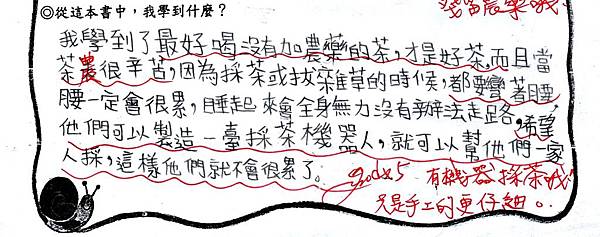 殘留農藥哦!
◎從這本書中，我學到什麼？
我學到了最好喝沒有加農藥的茶，才是好茶，而且當
茶農很辛苦，因為採茶或拔雜草的時候，都要彎著腰，
腰一定會很累，睡起來會全身無力沒有辦法走路，希望
他們可以製造一臺採茶機器人，就可以幫他們一家
人採，這樣他們就不會很累了。
goodx5 有機器採茶哦!
只是手工的更仔細。